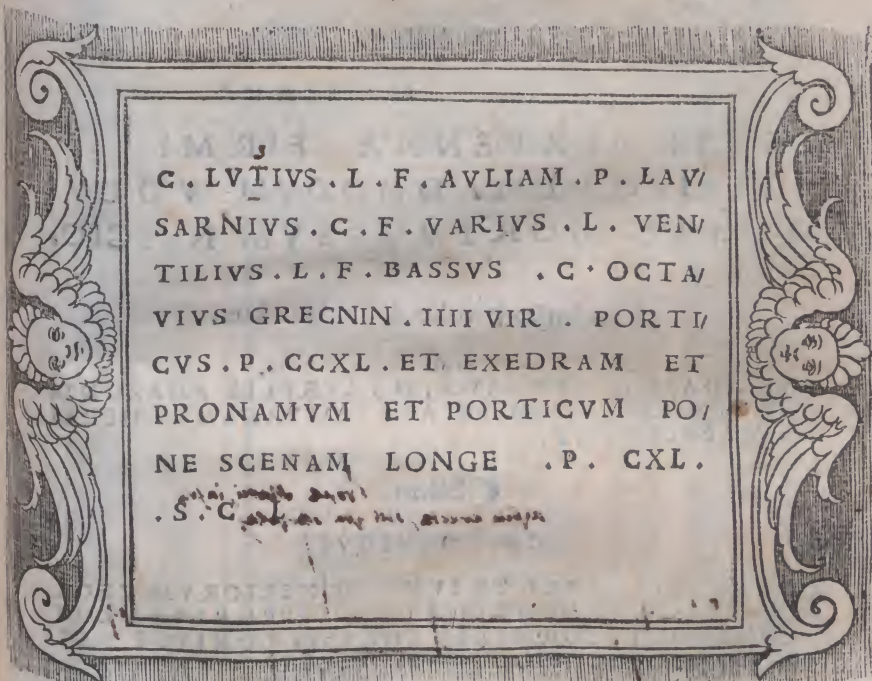 s
C . LVTIVS . L . F . AVLIAM . P . LAV/
SARNIVS . C . F . VARIVS . L . VEN/
TILIVS . L . F . BASSVS . C · OCTA/
VIVS GRECNIN . IIII VIR . PORTI/
CVS . P . CCXL . ET EXEDRAM ET
PRONAMVM ET PORTICVM PO/
NE SCENAM LONGE . P . CXL .
. S . C